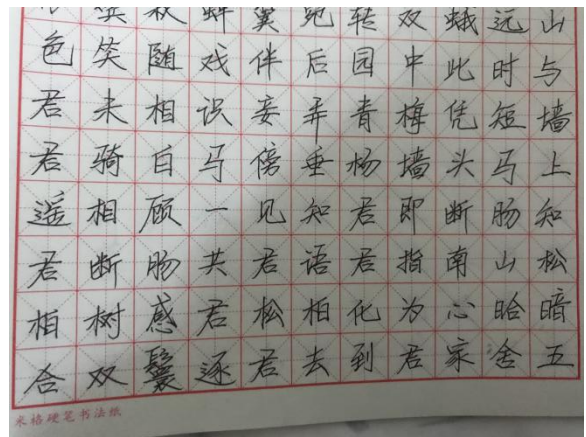 秋蝉翼转双蛾远山
色笑随戏伴后园中此时与
君未相识妾弄青梅凭短墙
君骑白马傍垂杨墙头马上
遥相顾一见知君即断肠知
君断肠共君语君指南山松
柏树感君松柏化为心晗暗
合双鬟逐君去到君家舍五
米格硬笔书法纸